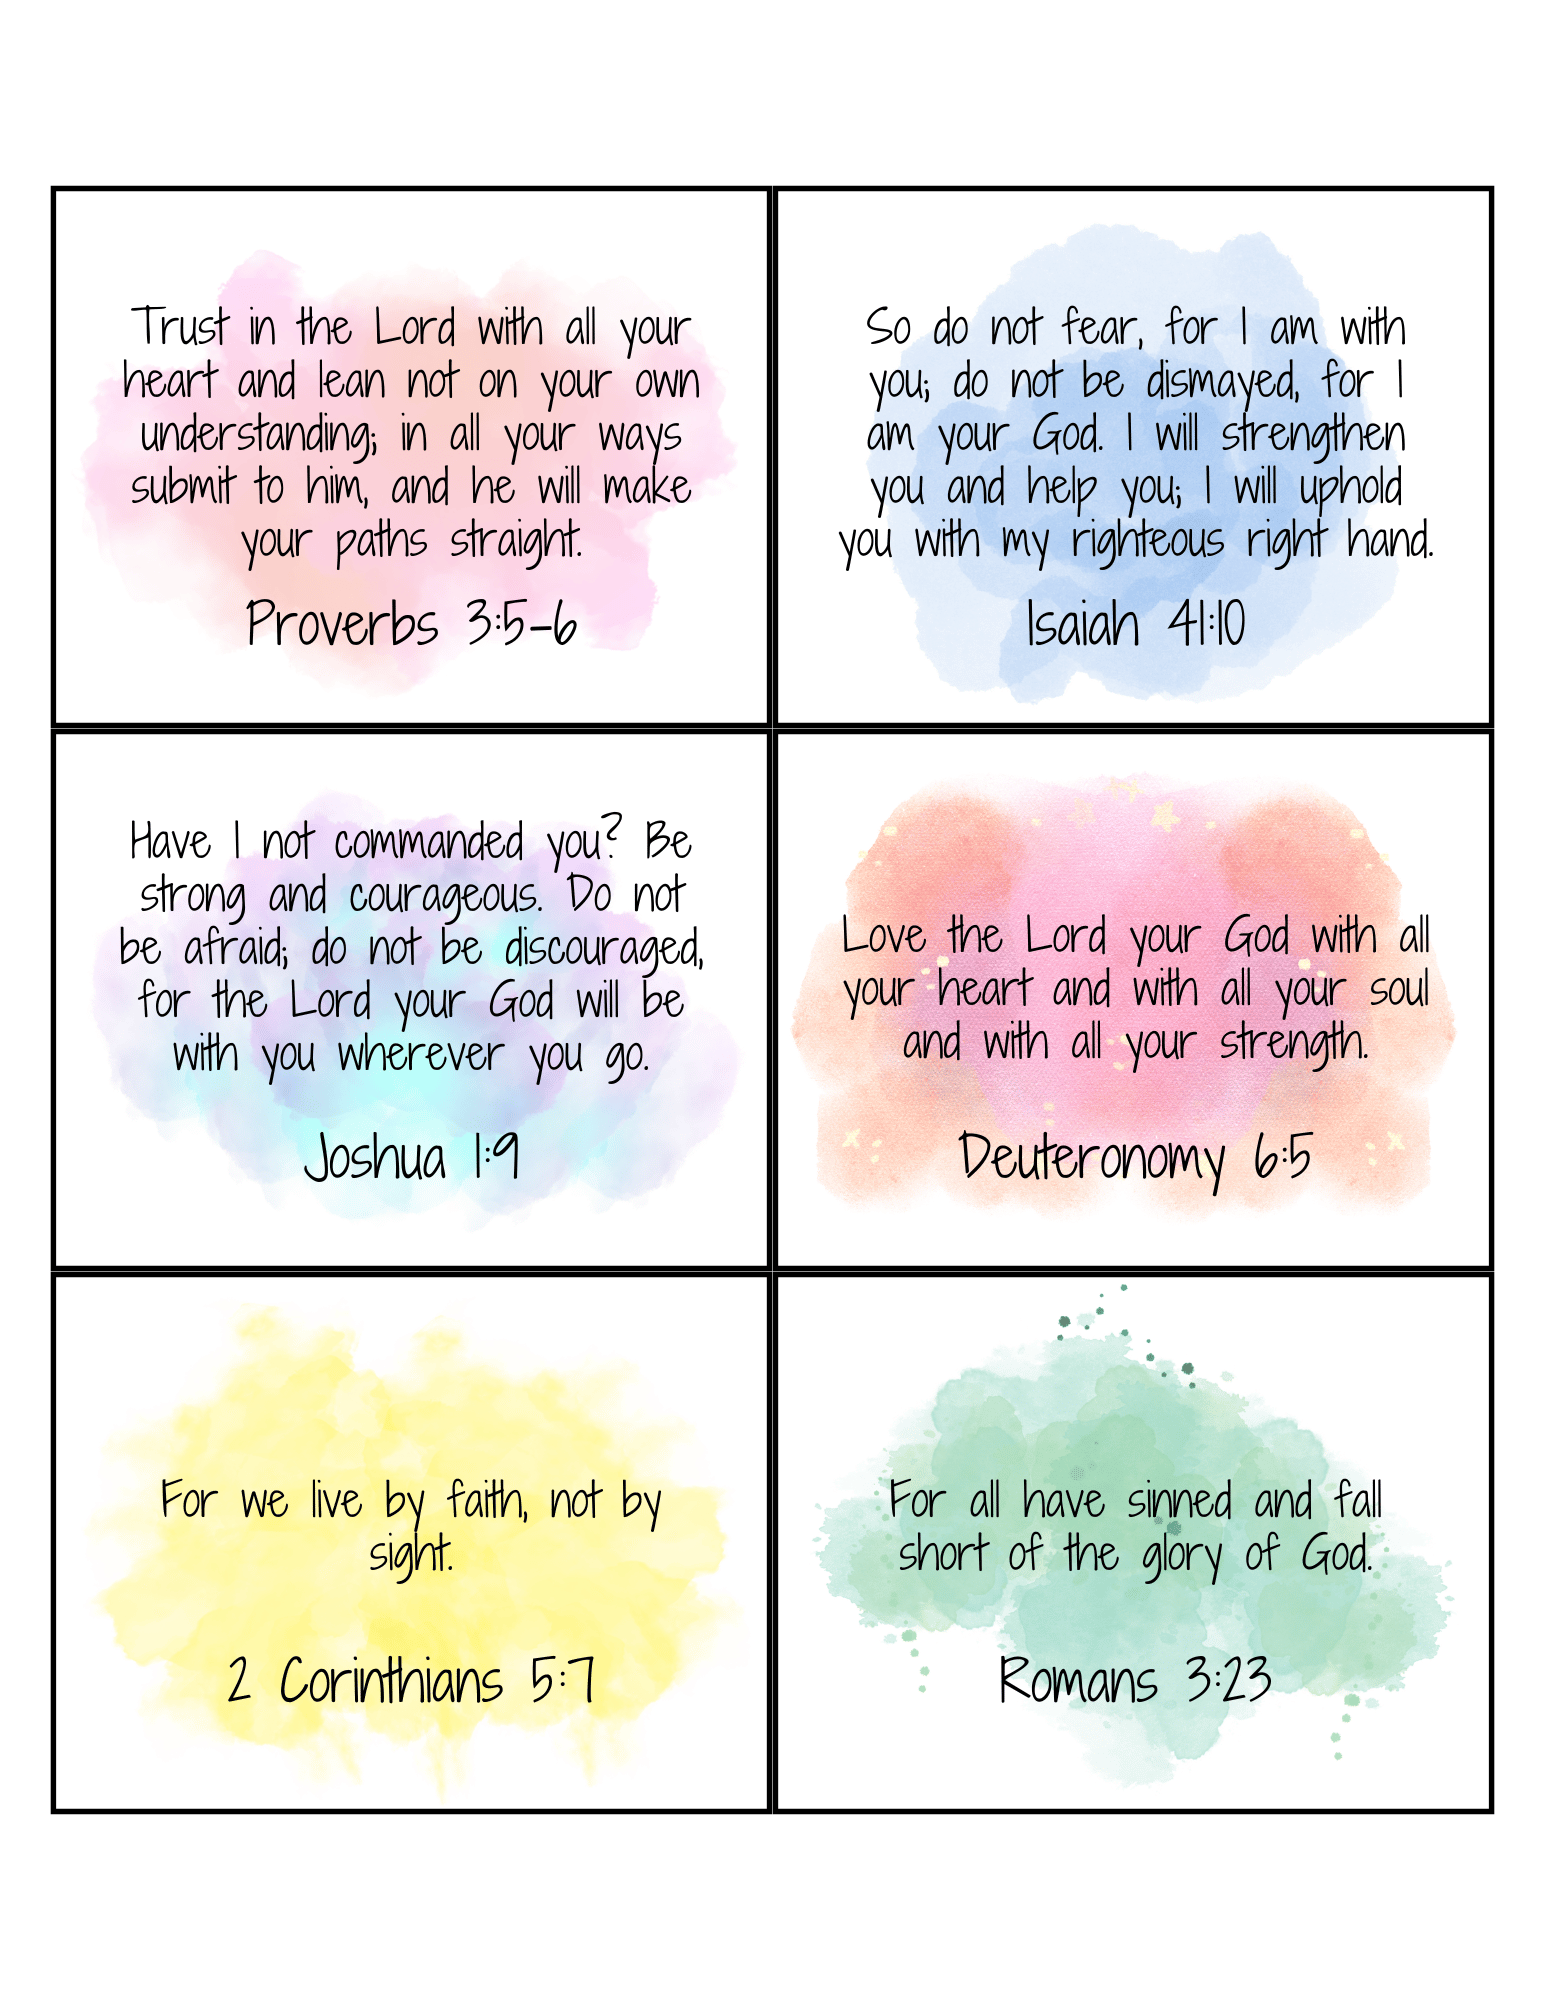 Trust in the Lord with all your
heart and lean not on your own
understanding; in all your ways
submit to him, and he will make
your paths straight.
Proverbs 3:5-6
So do not fear, for I am with
you; do not be dismayed, for I
am your God. I will strengthen
you and help you; I will uphold
you with my righteous right hand.
Isaiah 41:10
Have I not commanded you? Be
strong and courageous. Do not
be afraid; do not be discouraged,
for the Lord your God will be
with you wherever you go.
Joshua 1:9
Love the Lord your God with all
your heart and with all your soul
and with all your strength.
Deuteronomy 6:5
For we live by faith, not by
sight.
2 Corinthians 5:7
For all have sinned and fall
short of the glory of God.
Romans 3:23